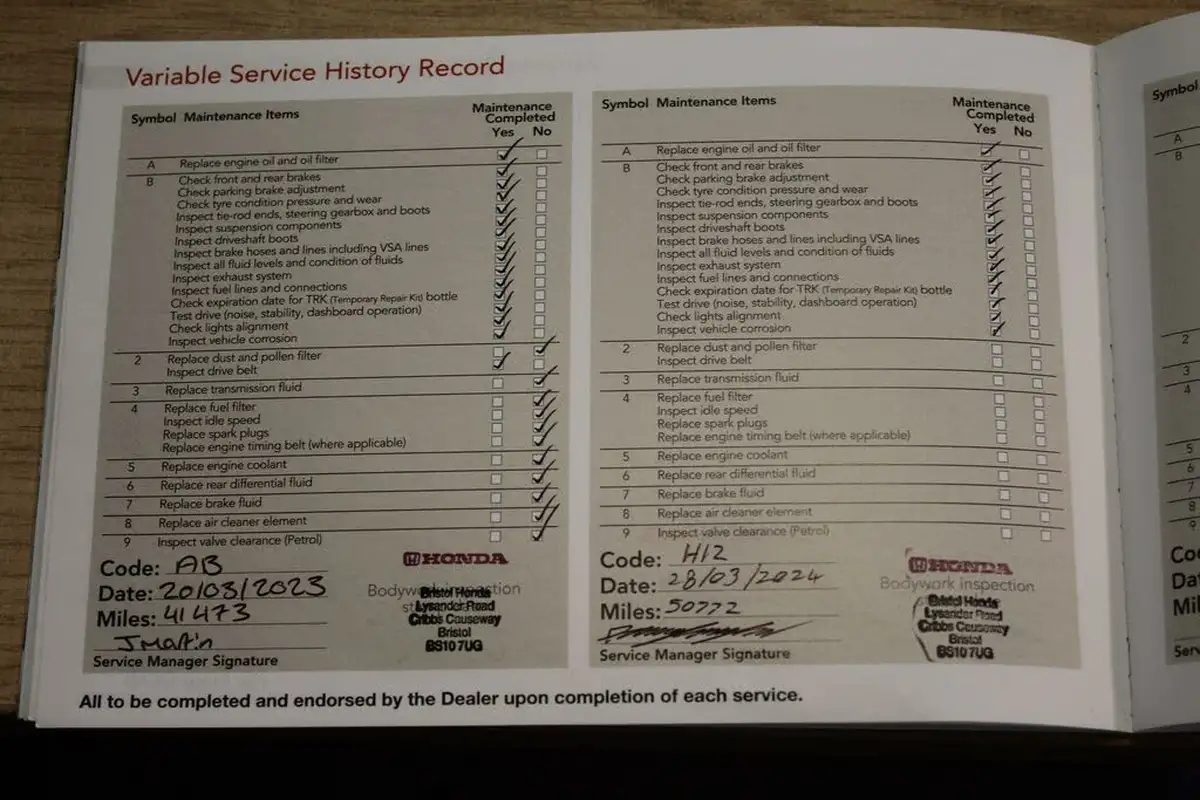 Variable Service History Record
Symbol Maintenance Items
Maintenance
Completed
Yes No
A Replace engine oil and oil filter
B Check front and rear brakes
Check parking brake adjustment
Check tyre condition pressure and wear
Inspect tie-rod ends, steering gearbox and boots
Inspect suspension components
Inspect driveshaft boots
Inspect brake hoses and lines including VSA lines
Inspect all fluid levels and condition of fluids
Inspect exhaust system
Inspect fuel lines and connections
Check expiration date for TRK (Temporary Repair Kit) bottle
Test drive (noise, stability, dashboard operation)
Check lights alignment
Inspect vehicle corrosion
2 Replace dust and pollen filter
Inspect drive belt
3 Replace transmission fluid
4 Replace fuel filter
Inspect idle speed
Replace spark plugs
Replace engine timing belt (where applicable)
5 Replace engine coolant
6 Replace rear differential fluid
7 Replace brake fluid
8 Replace air cleaner element
9 Inspect valve clearance (Petrol)
Code: AB
Date: 20/03/2023
Miles: 41473
J Martin
Service Manager Signature
HONDA
Bodywork inspection
Bristol Honda
Lysander Road
Cribbs Causeway
Bristol
BS10 7UG
Symbol Maintenance Items
Maintenance
Completed
Yes No
A Replace engine oil and oil filter
B Check front and rear brakes
Check parking brake adjustment
Check tyre condition pressure and wear
Inspect tie-rod ends, steering gearbox and boots
Inspect suspension components
Inspect driveshaft boots
Inspect brake hoses and lines including VSA lines
Inspect all fluid levels and condition of fluids
Inspect exhaust system
Inspect fuel lines and connections
Check expiration date for TRK (Temporary Repair Kit) bottle
Test drive (noise, stability, dashboard operation)
Check lights alignment
Inspect vehicle corrosion
2 Replace dust and pollen filter
Inspect drive belt
3 Replace transmission fluid
4 Replace fuel filter
Inspect idle speed
Replace spark plugs
Replace engine timing belt (where applicable)
5 Replace engine coolant
6 Replace rear differential fluid
7 Replace brake fluid
8 Replace air cleaner element
9 Inspect valve clearance (Petrol)
Code: H12
Date: 28/03/2024
Miles: 50772
Service Manager Signature
HONDA
Bodywork inspection
Bristol Honda
Lysander Road
Cribbs Causeway
Bristol
BS10 7UG
All to be completed and endorsed by the Dealer upon completion of each service.
Symbol
A
B
2
3
4
5
6
7
8
9